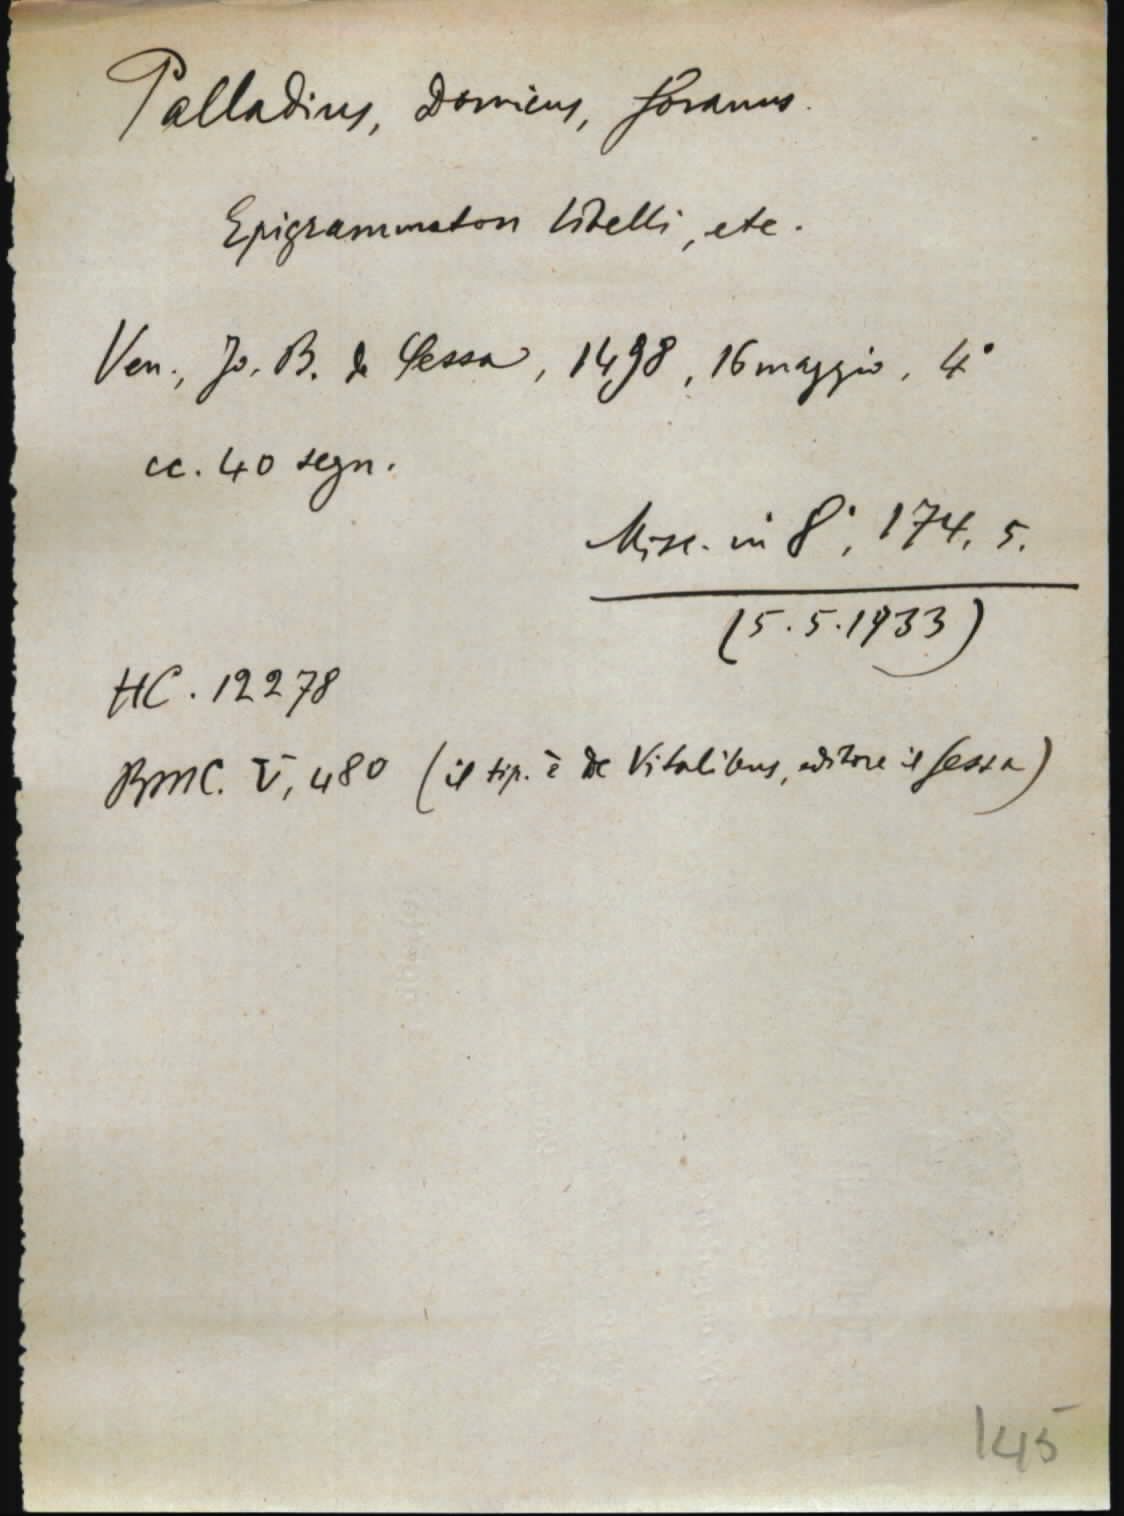 Palladius, Domicus, Soranus.
Epigrammaton libelli, etc.
Ven., Jo. B. de Sessa, 1498, 16 maggio, 4°
cc. 40 segn.
Misc. in 8°, 174. 5.
(5.5.1933)
HC. 12278
BMC. V, 480 (il tip. è De Vitalibus, editore il Sessa)
145